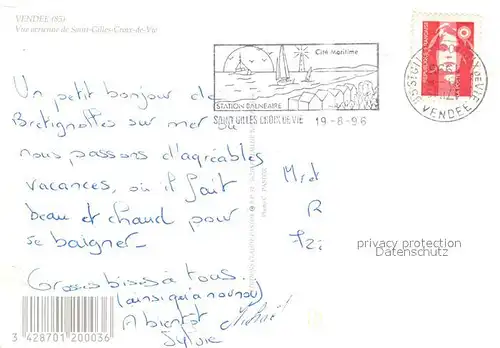 VENDEE (85)
Vue aérienne de Saint-Gilles-Croix-de-Vie
Cité Maritime
STATION BALNEAIRE
SAINT GILLES CROIX DE VIE 19-8-96
VENDEE
Un petit bonjour de
Bretignolles sur mer où
nous passons d'agréables
vacances, où il fait
beau et chaud pour
se baigner.
Grosses bises à tous.
(ainsi qu'à nounou)
A bientôt
Sylvie
M et
R
72
privacy protection
Datenschutz
3 428701 200036